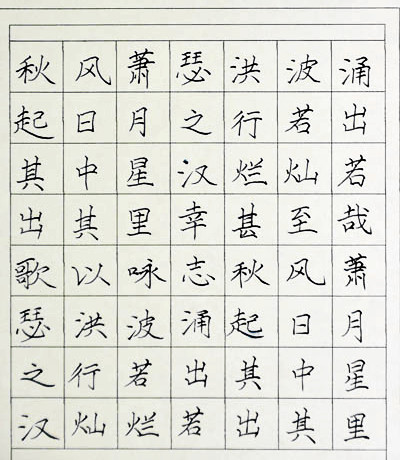 秋风萧瑟洪波涌
起日月之行若出
其中星汉烂灿若
出其里幸甚至哉
歌以咏志秋风萧
瑟洪波涌起日月
之行若出其中星
汉灿烂若出其里